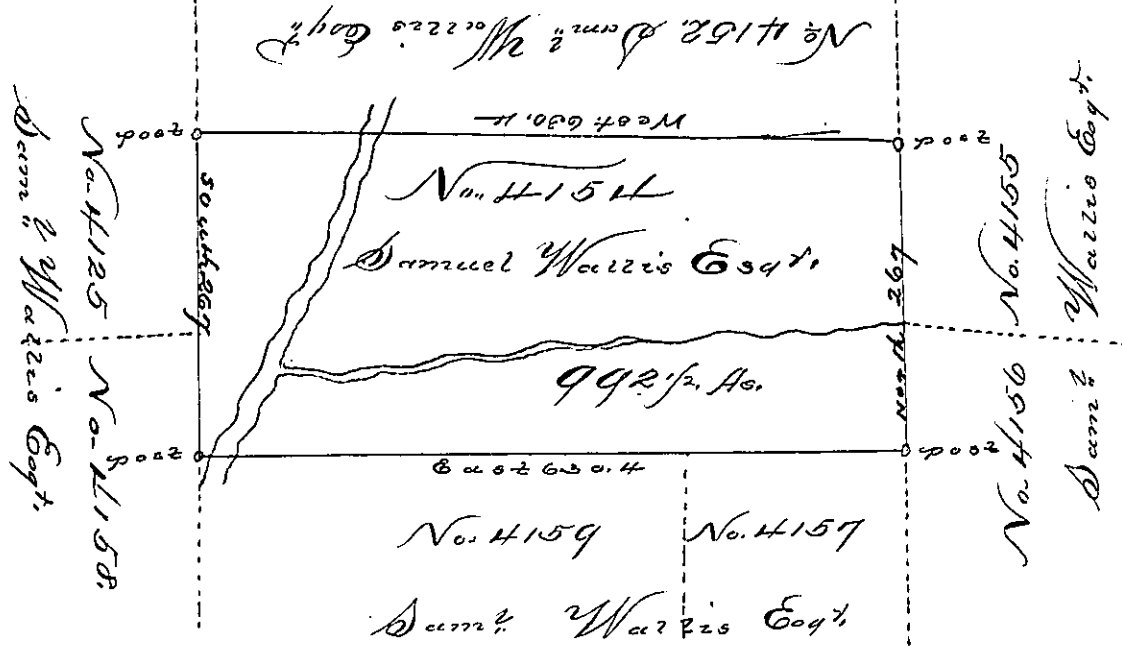 No. 4152, Sam'l Wallis Esqr.
post
West 630.4
post
No. 4154
Samuel Wallis Esqr.
South 267
North 267
992 1/2 As.
post
East 630.4
post
No. 4159
No. 4157
Sam'l Wallis Esqr.
No. 4125
No. 4158.
Sam'l Wallis Esqr.
No. 4156
No. 4155
Sam'l Wallis Esqr.